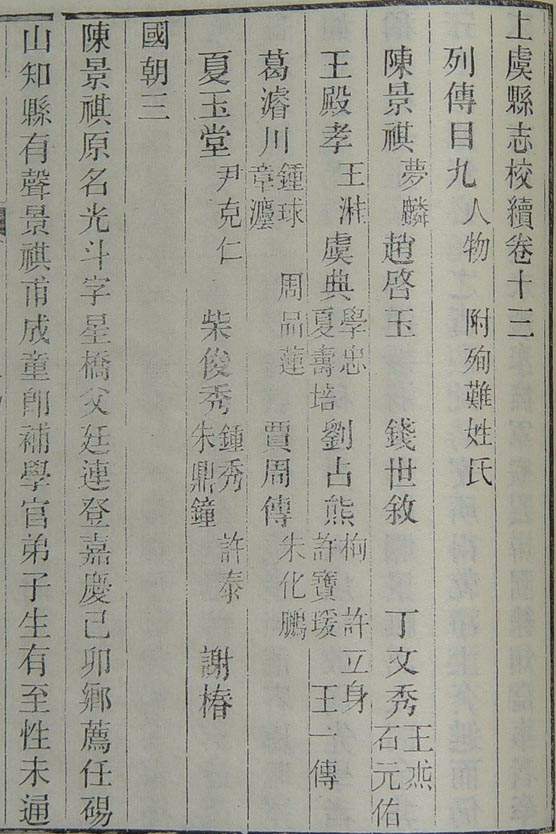 上虞縣志校續卷十三
列傳目九 人物 附殉難姓氏
陳景祺 夢麟 趙啓玉 錢世敘 丁文秀 王燕 石元佑
王殿孝 王淋 虞典 學忠 夏壽培 劉占熊 栒 許寶瑗 許立身 王一傳
葛濬川 鍾球 章灋 周品蓮 賈周傳 朱化鵬
夏玉堂 尹克仁 柴俊秀 鍾秀 朱鼎鐘 許泰 謝椿
國朝三
陳景祺原名光斗字星橋父廷連登嘉慶己卯鄉薦任碭
山知縣有聲景祺甫成童即補學官弟子生有至性未通